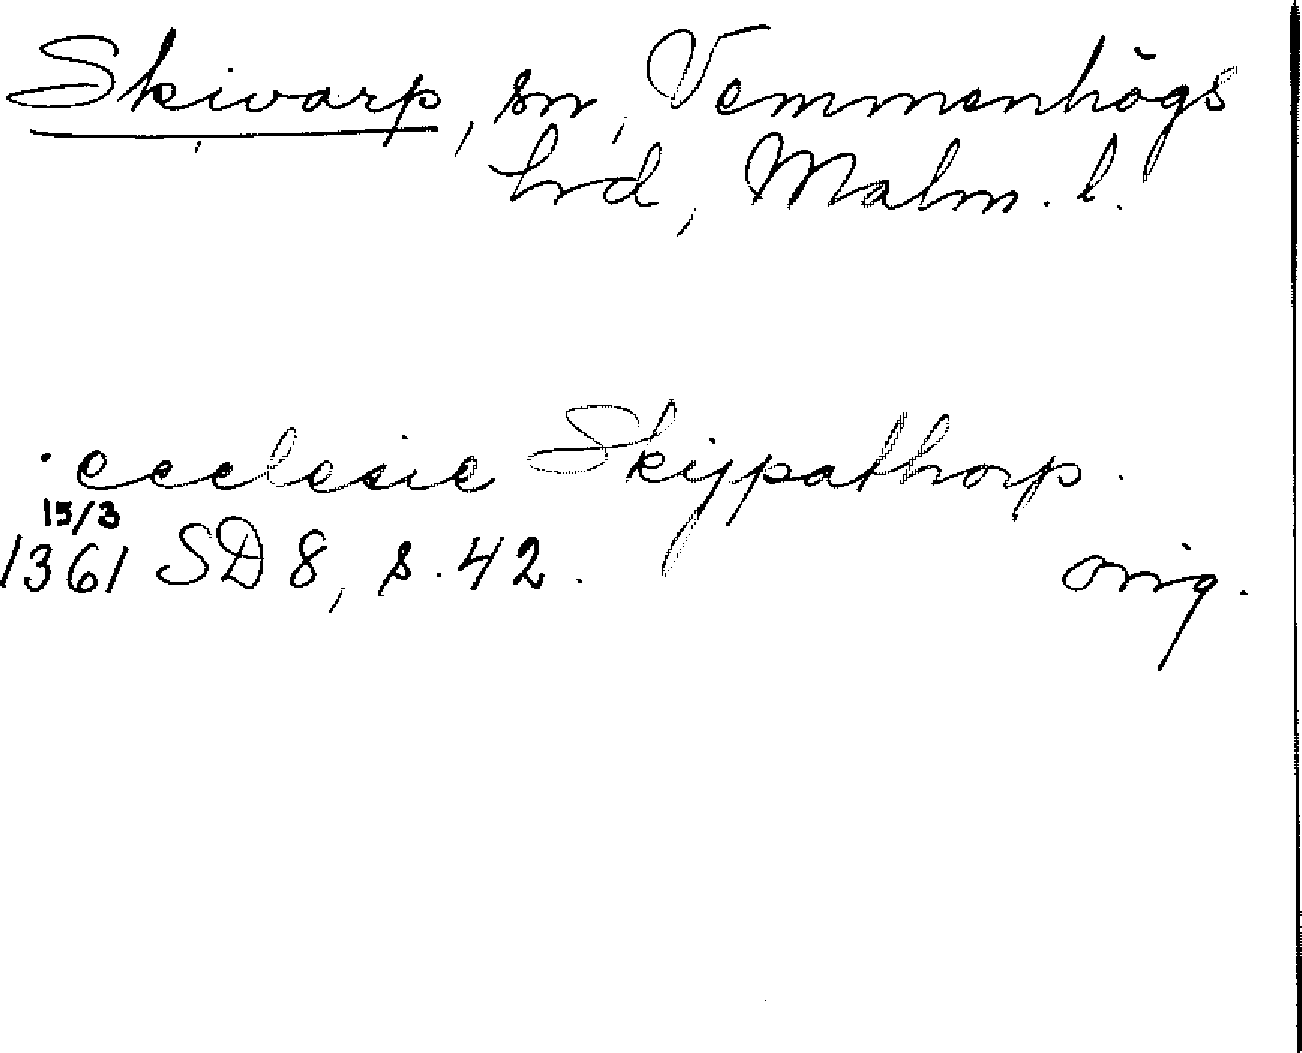 Skivarp, sn, Vemmenhögs
hrd, Malm. l.
ecclesie Skijpathorp.
15/3
1361 SD 8, s. 42. orig.